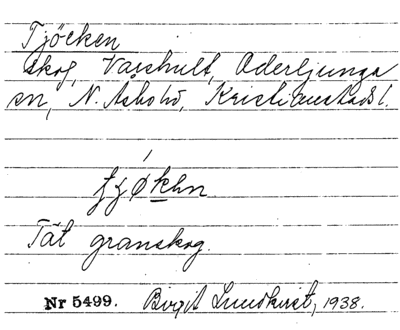 Tjöcken
skog, Varshult, Oderljunga
sn, N. Åsbo hd, Kristianstads l.
Tät granskog.
Nr 5499. Birgit Lundkvist, 1938.